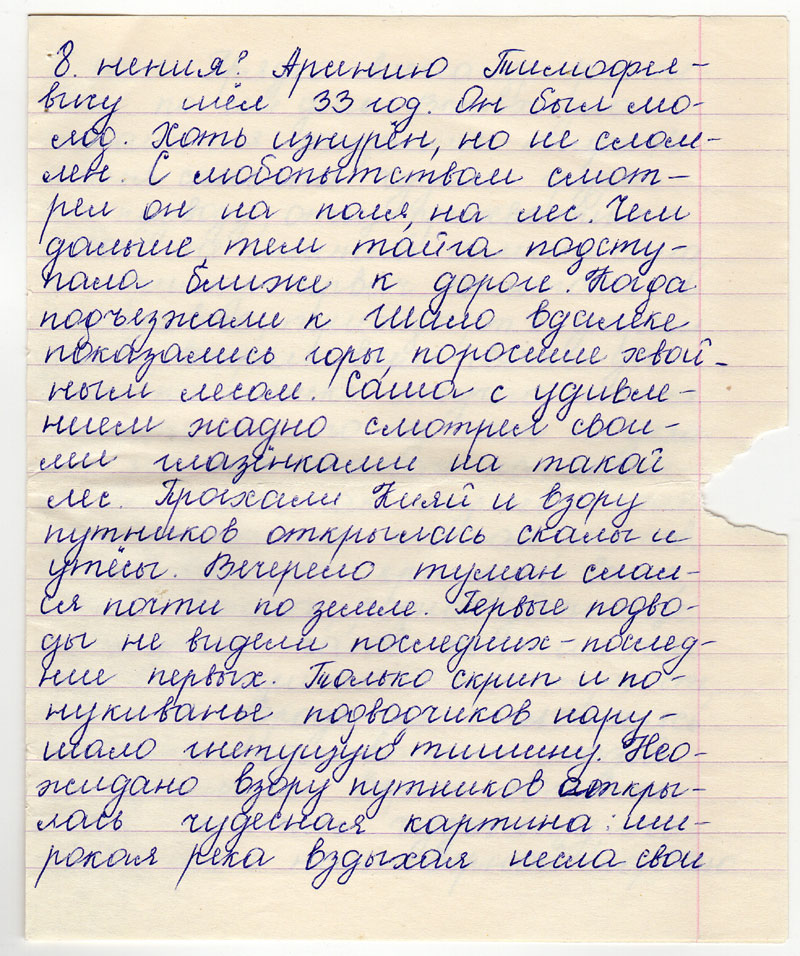 8. нения? Арсению Тимофее-
вичу шёл 33 год. Он был мо-
лод. Хоть изнурён, но не слом-
лен. С любопытством смот-
рел он на поля, на лес. Чем
дальше, тем тайга подсту-
пала ближе к дороге. Когда
подъезжали к вдалеке
показались горы, поросшие хвой-
ным лесом. Саша с удивле-
нием жадно смотрел свои-
ми глазёнками на такой
лес. Проехали и взору
путников открылась скалы и
утёсы. Вечерело туман слал-
ся почти по земле. Первые подво-
ды не видели последних-послед-
ние первых. Только скрип и по-
нукиванье подводчиков нару-
шало гнетущую тишину. Нео-
жидано взору путников откры-
лась чудесная картина: ши-
рокая река вздыхая несла свои